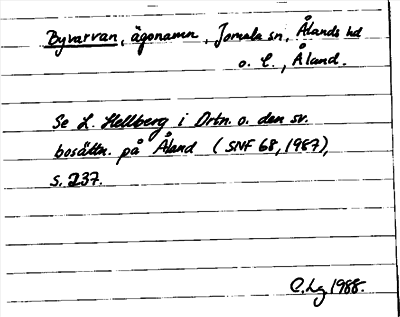 Byvarvan, ägonamn, Jomala sn, Ålands hd
o. l., Åland.
Se L. Hellberg i Ortn. o. den sv.
bosättn. på Åland (SNF 68, 1987),
s. 237.
C. Lg 1988.